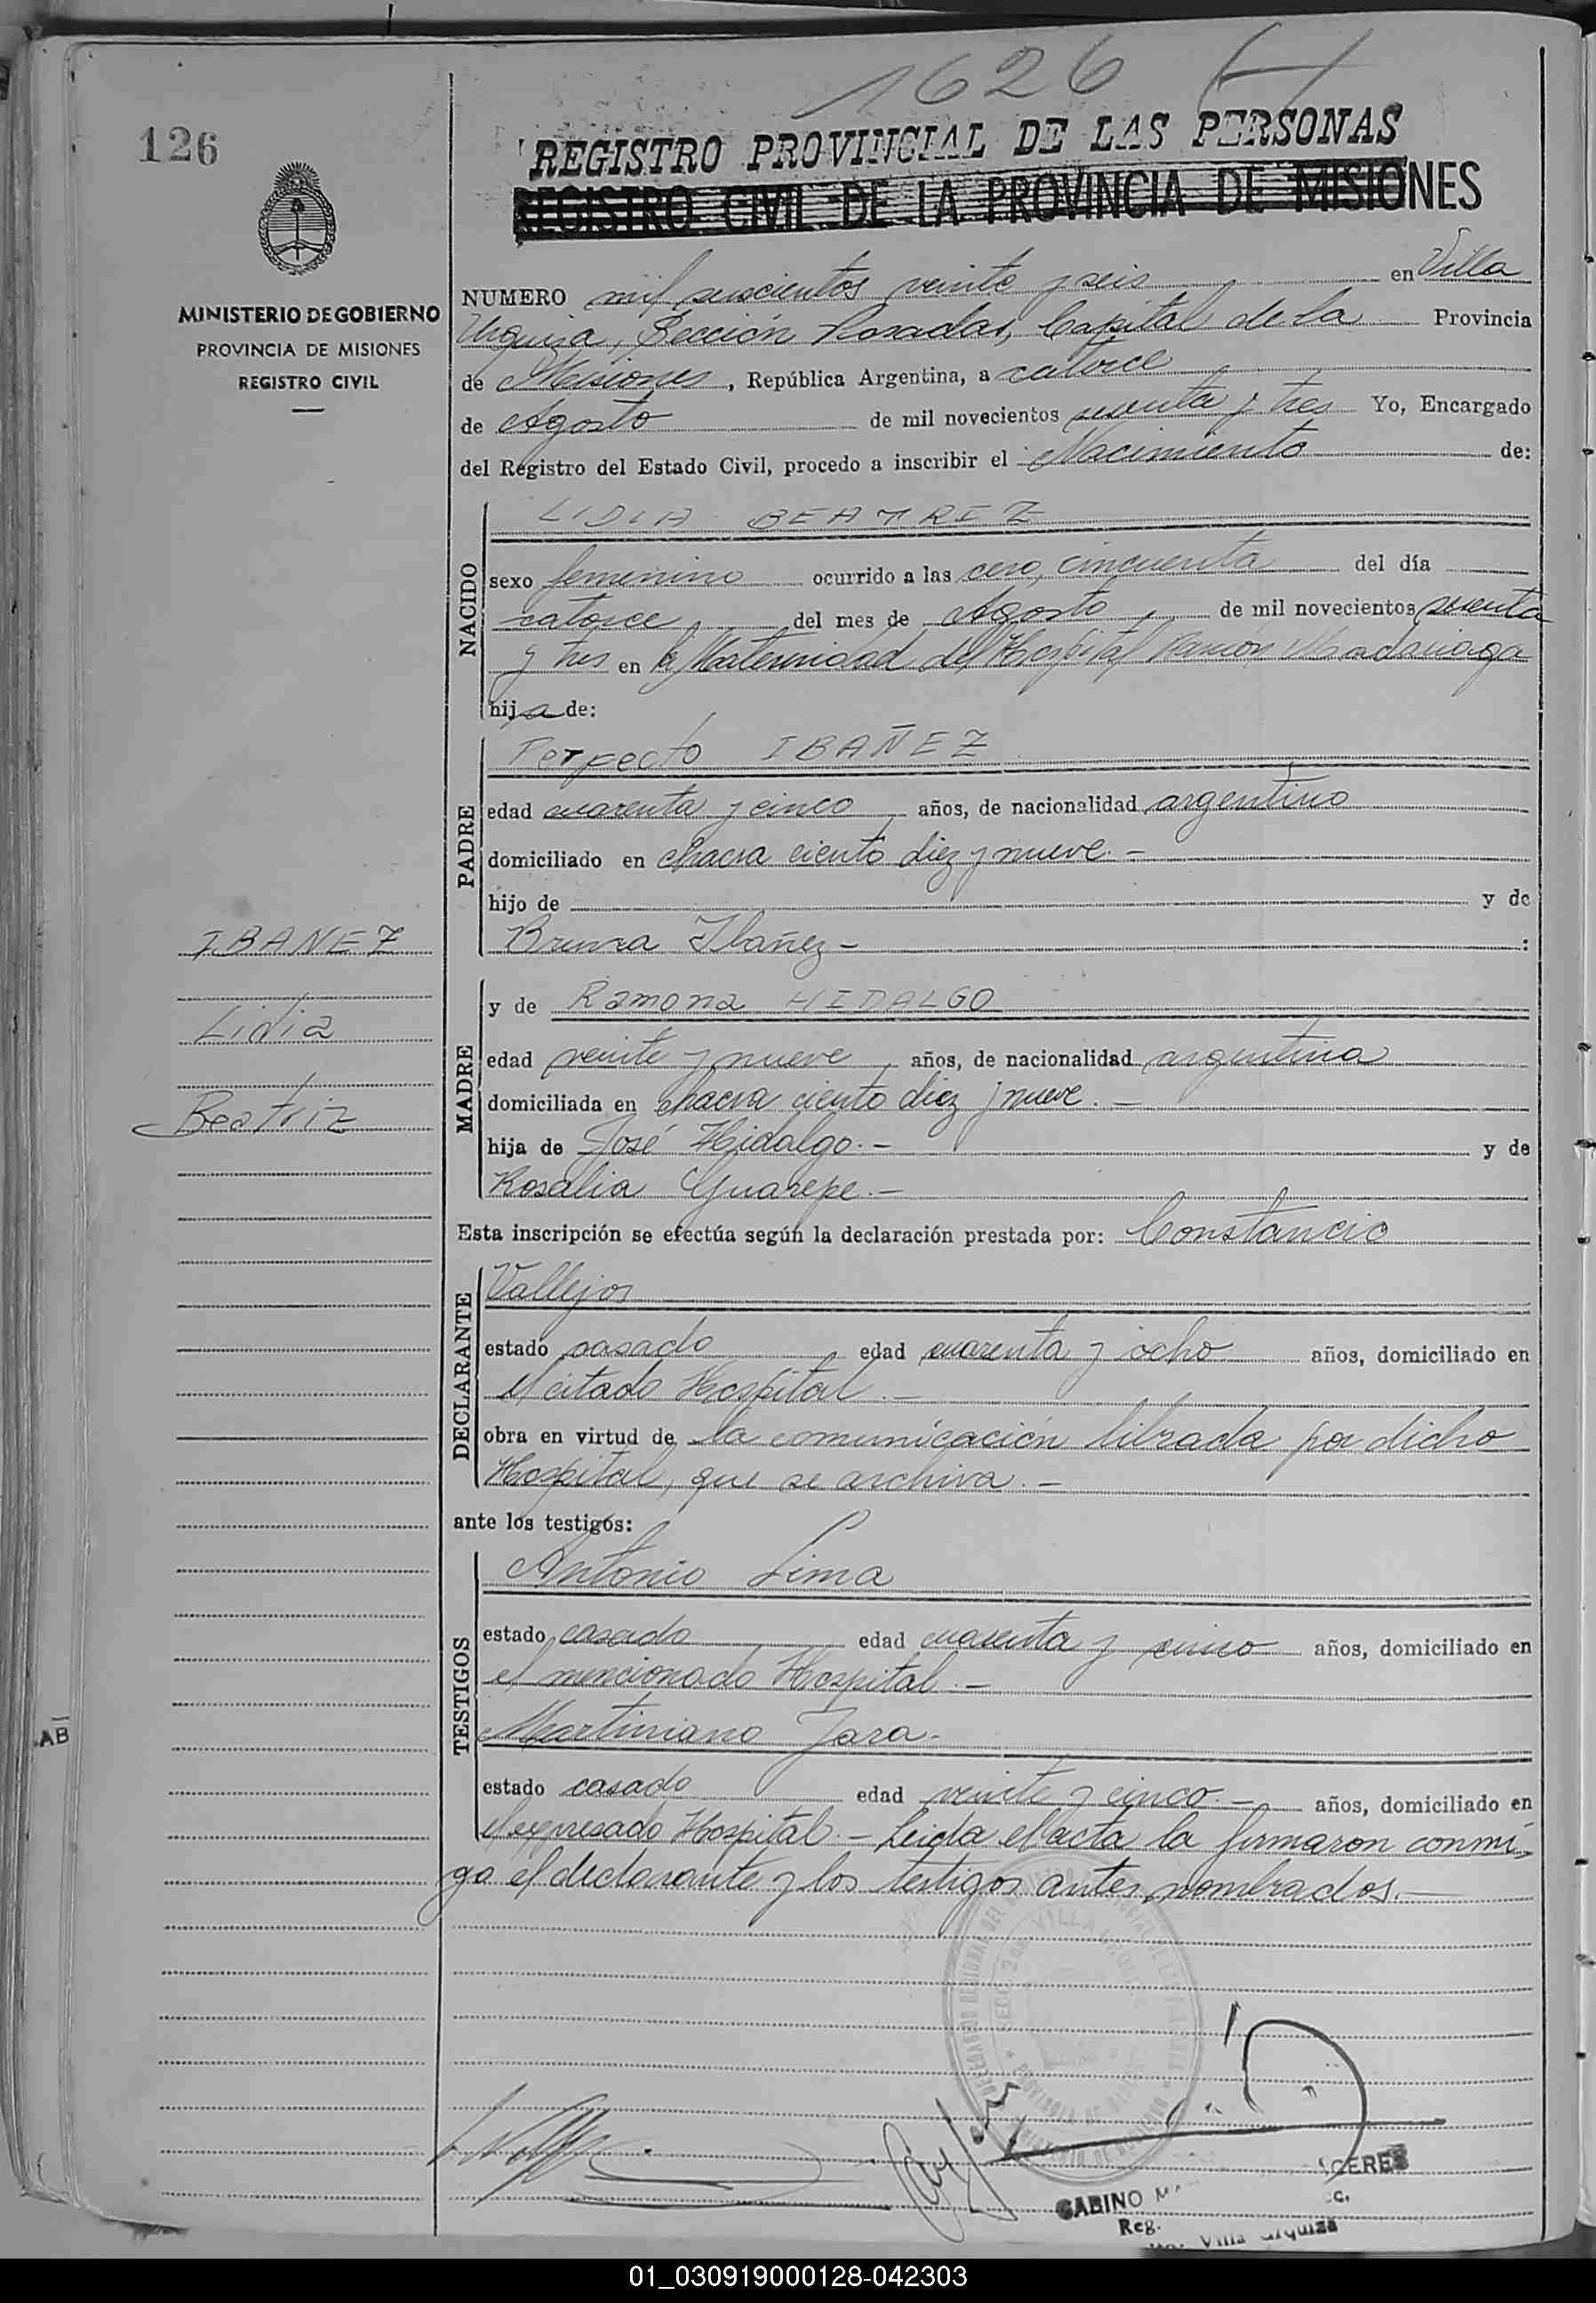 1626
126
REGISTRO PROVINCIAL DE LAS PERSONAS
REGISTRO CIVIL DE LA PROVINCIA DE MISIONES
MINISTERIO DE GOBIERNO
PROVINCIA DE MISIONES
REGISTRO CIVIL
NUMERO mil seiscientos veinte y seis en Villa
Urquiza, Sección Posadas, Capital de la Provincia
de Misiones, República Argentina, a catorce
de Agosto de mil novecientos sesenta y tres Yo, Encargado
del Registro del Estado Civil, procedo a inscribir el Nacimiento de:
NACIDO
LIDIA BEATRIZ
sexo femenino ocurrido a las cero, cincuenta del día
catorce del mes de Agosto de mil novecientos sesenta
y tres en la Maternidad del Hospital Ramón Madariaga
hija de:
PADRE
Perfecto IBAÑEZ
edad cuarenta y cinco años, de nacionalidad argentino
domiciliado en chacra ciento diez y nueve.-
hijo de y de
Bruna Ibañez- :
IBAÑEZ
Lidia
Beatriz
MADRE
y de Ramona HIDALGO
edad veinte y nueve años, de nacionalidad argentina
domiciliada en chacra ciento diez y nueve.-
hija de José Hidalgo.- y de
Rosalia Guarepe.-
Esta inscripción se efectúa según la declaración prestada por: Constancio
DECLARANTE
Vallejos
estado casado edad cuarenta y ocho años, domiciliado en
el citado Hospital.-
obra en virtud de la comunicación librada por dicho
Hospital, que se archiva.-
ante los testigos:
TESTIGOS
Antonio Lima
estado casado edad cuarenta y cinco años, domiciliado en
el mencionado Hospital.-
Martiniano Jara.-
estado casado edad veinte y cinco.- años, domiciliado en
el expresado Hospital.- Leida el acta la firmaron conmi-
go el declarante y los testigos antes nombrados.-
AB
VILLA
GABINO CERES
Reg. Villa Urquiza
01_030919000128-042303